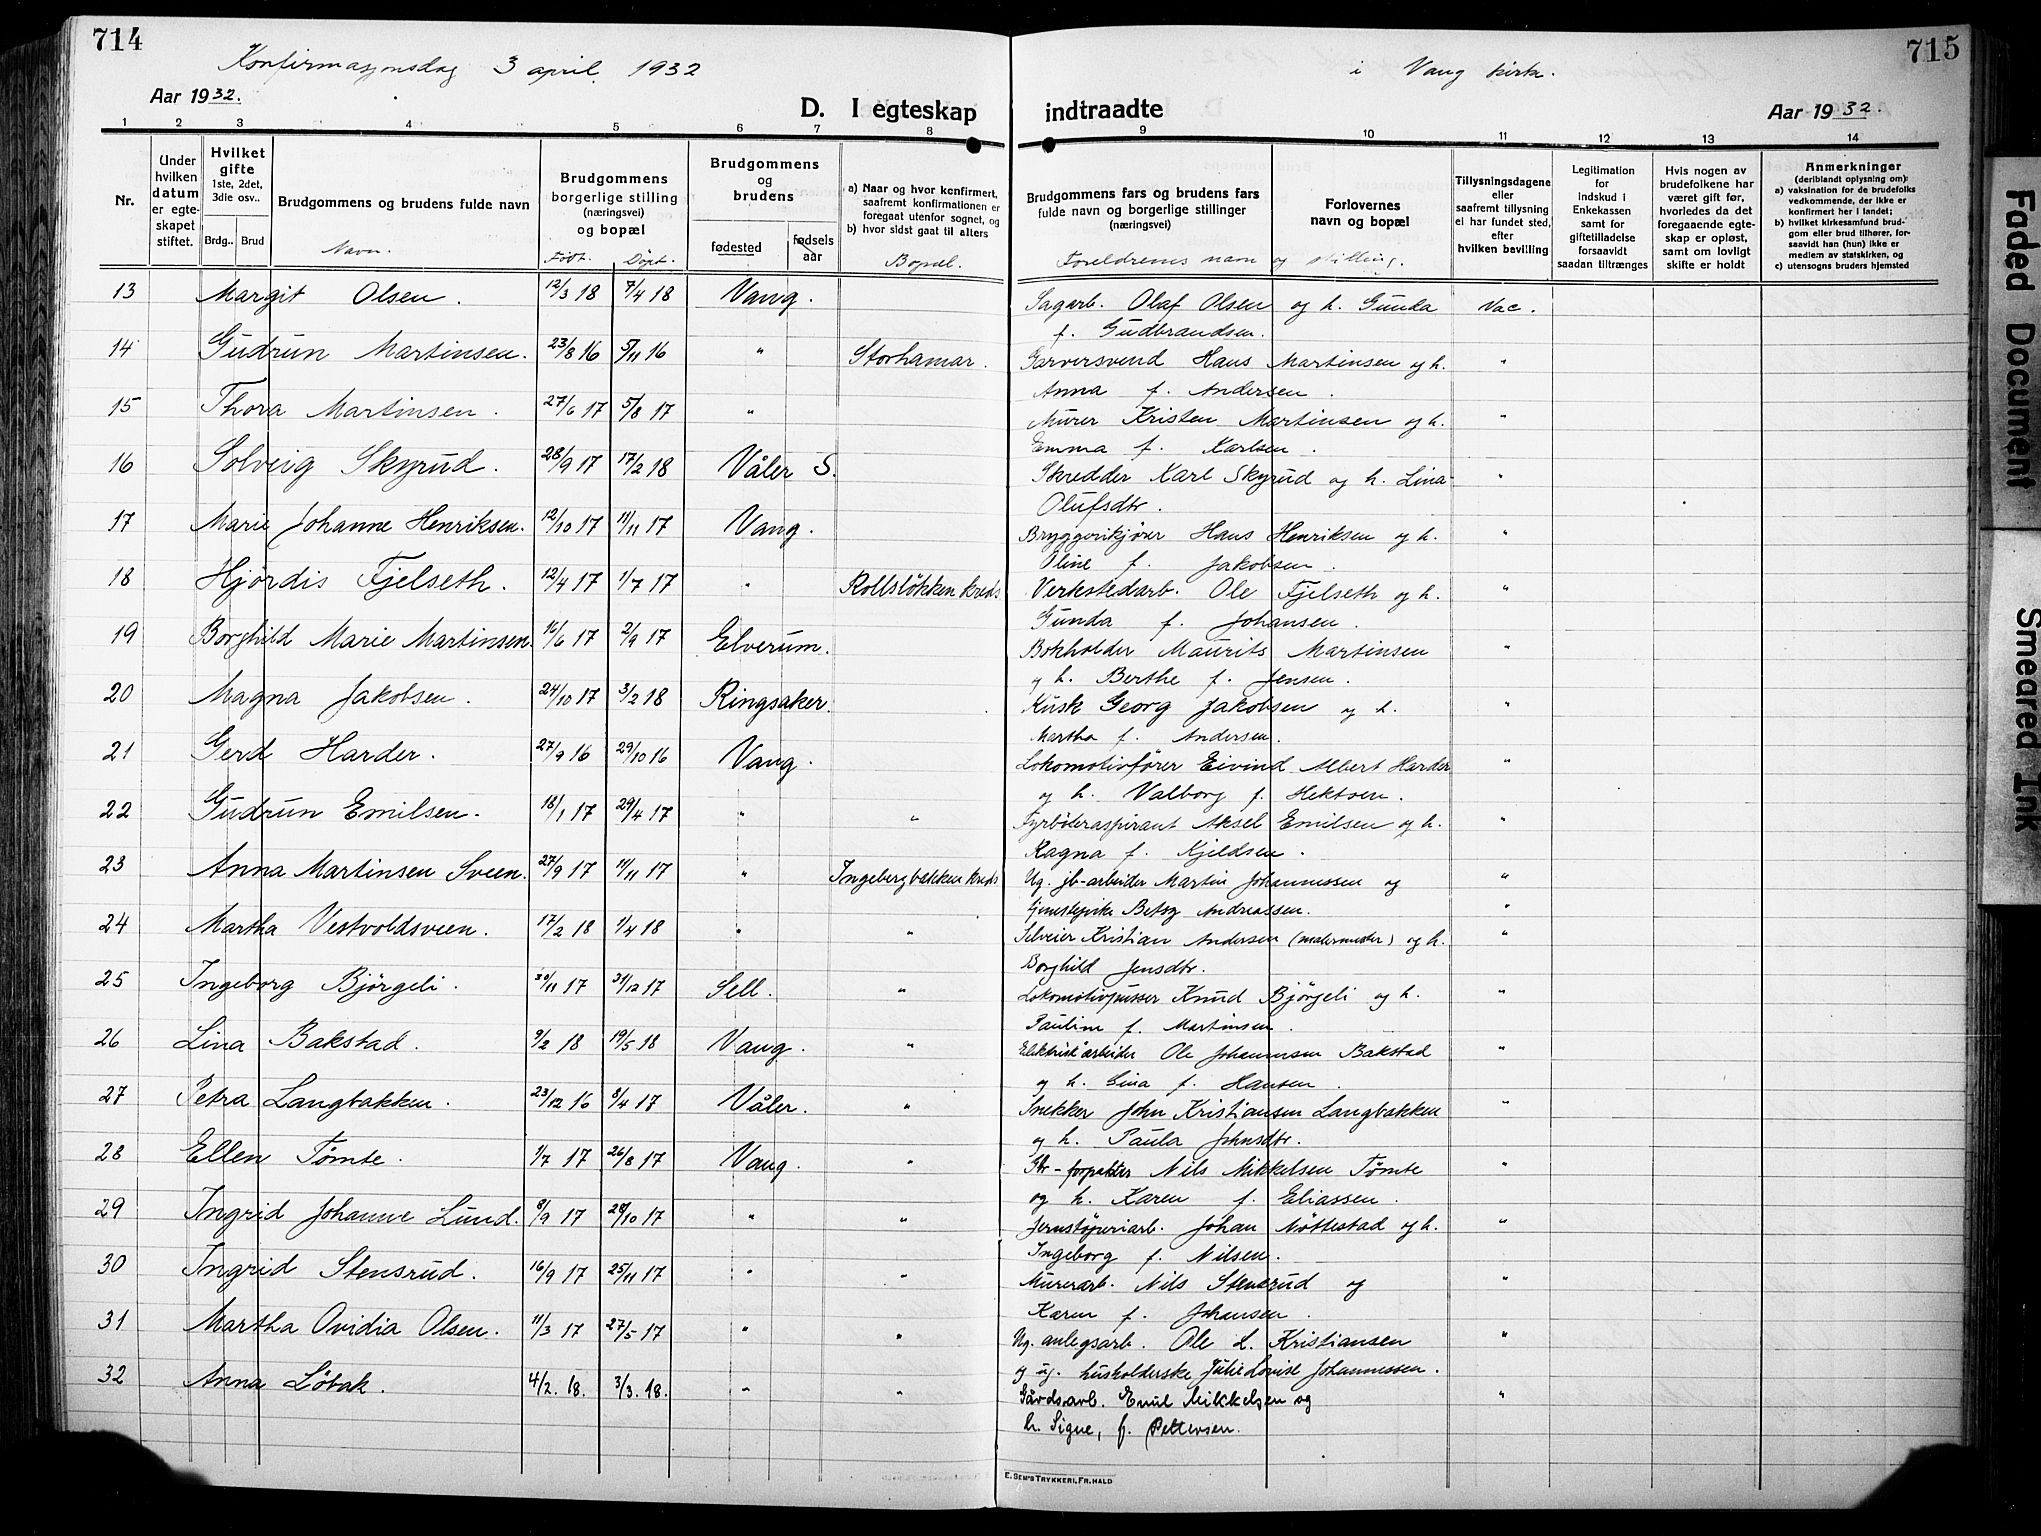 714
Konfirmasjonsdag 3 april 1932
Aar 1932.
D. I egteskap
1 2 3 4 5 6 7 8
Nr.
Under hvilken datum er egteskapet stiftet.
Hvilket gifte 1ste, 2det, 3die osv..
Brdg.. Brud
Brudgommens og brudens fulde navn
Navn.
Brudgommens borgerlige stilling (næringsvei) og bopæl
Født. Døpt.
Brudgommens og brudens
fødested
fødsels aar
a) Naar og hvor konfirmert, saafremt konfirmationen er foregaat utenfor sognet, og
b) hvor sidst gaat til alters
Bopæl.
13 Margit Olsen. 12/3 18 7/4 18 Vang.
14 Gudrun Martinsen. 23/8 16 5/11 16 " Storhamar.
15 Thora Martinsen. 27/6 17 5/8 17 "
16 Solveig Skyrud. 28/9 17 17/2 18 Våler S.
17 Marie Johanne Henriksen. 12/10 17 11/11 17 Vang.
18 Hjördis Fjelseth. 12/4 17 1/7 17 " Rollsløkken kreds
19 Borghild Marie Martinsen. 16/6 17 2/9 17 Elverum.
20 Magna Jakobsen. 24/10 17 3/2 18 Ringsaker.
21 Gerd Harder. 27/9 16 29/10 16 Vang.
22 Gudrun Emilsen. 18/1 17 29/4 17 " "
23 Anna Martinsen Sveen. 27/9 17 11/11 17 " Ingebergbakken kreds
24 Martha Vestvoldsveen. 17/2 18 1/4 18 " "
25 Ingeborg Bjørgeli. 30/11 17 31/12 17 Sell. "
26 Lina Bakstad. 9/2 18 19/5 18 Vang. "
27 Petra Langbakken. 23/12 16 8/4 17 Våler. "
28 Ellen Tømte. 1/7 17 26/8 17 Vang. "
29 Ingrid Johanne Lund. 8/9 17 28/10 17 " "
30 Ingrid Stensrud. 16/9 17 25/11 17 " "
31 Martha Ovidia Olsen. 11/3 17 27/5 17 " "
32 Anna Löbak. 4/2. 18. 3/3. 18. " "
715
i Vang kirke.
indtraadte
Aar 1932.
9 10 11 12 13 14
Brudgommens fars og brudens fars fulde navn og borgerlige stillinger (næringsvei)
Foreldrenes navn og stilling.
Forlovernes navn og bopæl
Tillysningsdagene eller saafremt tillysning ei har fundet sted, efter hvilken bevilling
Legitimation for indskud i Enkekassen samt for giftetilladelse forsaavidt saadan tiltrænges
Hvis nogen av brudefolkene har været gift før, hvorledes da det foregaaende egteskap er opløst, samt om lovligt skifte er holdt
Anmerkninger
(deriblandt oplysning om):
a) vaksination for de brudefolks vedkommende, der ikke er konfirmert her i landet;
b) hvilket kirkesamfund brudgom eller brud tilhører, forsaavidt han (hun) ikke er medlem av statskirken, og
c) utensogns bruders hjemsted
Sagarb. Olaf Olsen og h. Gunda Vac.
f. Gudbrandsen.
Garversvend Hans Martinsen og h. "
Anna f. Andersen.
Murer Kristen Martinsen og h. "
Emma f. Karlsen.
Skredder Karl Skyrud og h. Lina "
Olufsdtr.
Bryggerikjører Hans Henriksen og h. "
Oline f. Jakobsen.
Verkstedarb. Ole Fjelseth og h. "
Gunda f. Johansen.
Bokholder Maurits Martinsen "
og h. Berthe f. Jensen.
Kusk Georg Jakobsen og h. "
Martha f. Andersen.
Lokomotivfører Eivind Albert Harder "
og h. Valborg f. Hektoen.
Fyrbøteraspirant Aksel Emilsen og h. "
Ragna f. Kjeldsen.
Ug. jb-arbeider Martin Johannessen og "
tjenestepike Betsy Andreassen. "
Selveier Kristian Andersen (malermester) og h. "
Borghild Jensdtr.
Lokomotivpusser Knud Bjørgeli og h. "
Pauline f. Martinsen.
Elektrisk arbeider Ole Johannesen Bakstad "
og h. Lina f. Hansen.
Snekker John Kristiansen Langbakken "
og h. Paula Johnsdtr.
Gbr-forpakter Nils Mikkelsen Tømte "
og h. Karen f. Eliassen.
Jernstøperiarb. Johan Nøttestad og h. "
Ingeborg f. Nilsen.
Murerarb. Nils Stensrud og "
Karen f. Johansen.
Ug. anlegsarb. Ole L. Kristiansen "
og ug. husholderske Julie Lovise Johannessen.
Gårdsarb. Emil Mikkelsen og "
h. Signe, f. Pettersen.
E. SEM'S TRYKKERI, FR.HALD
Faded Document
Smeared Ink